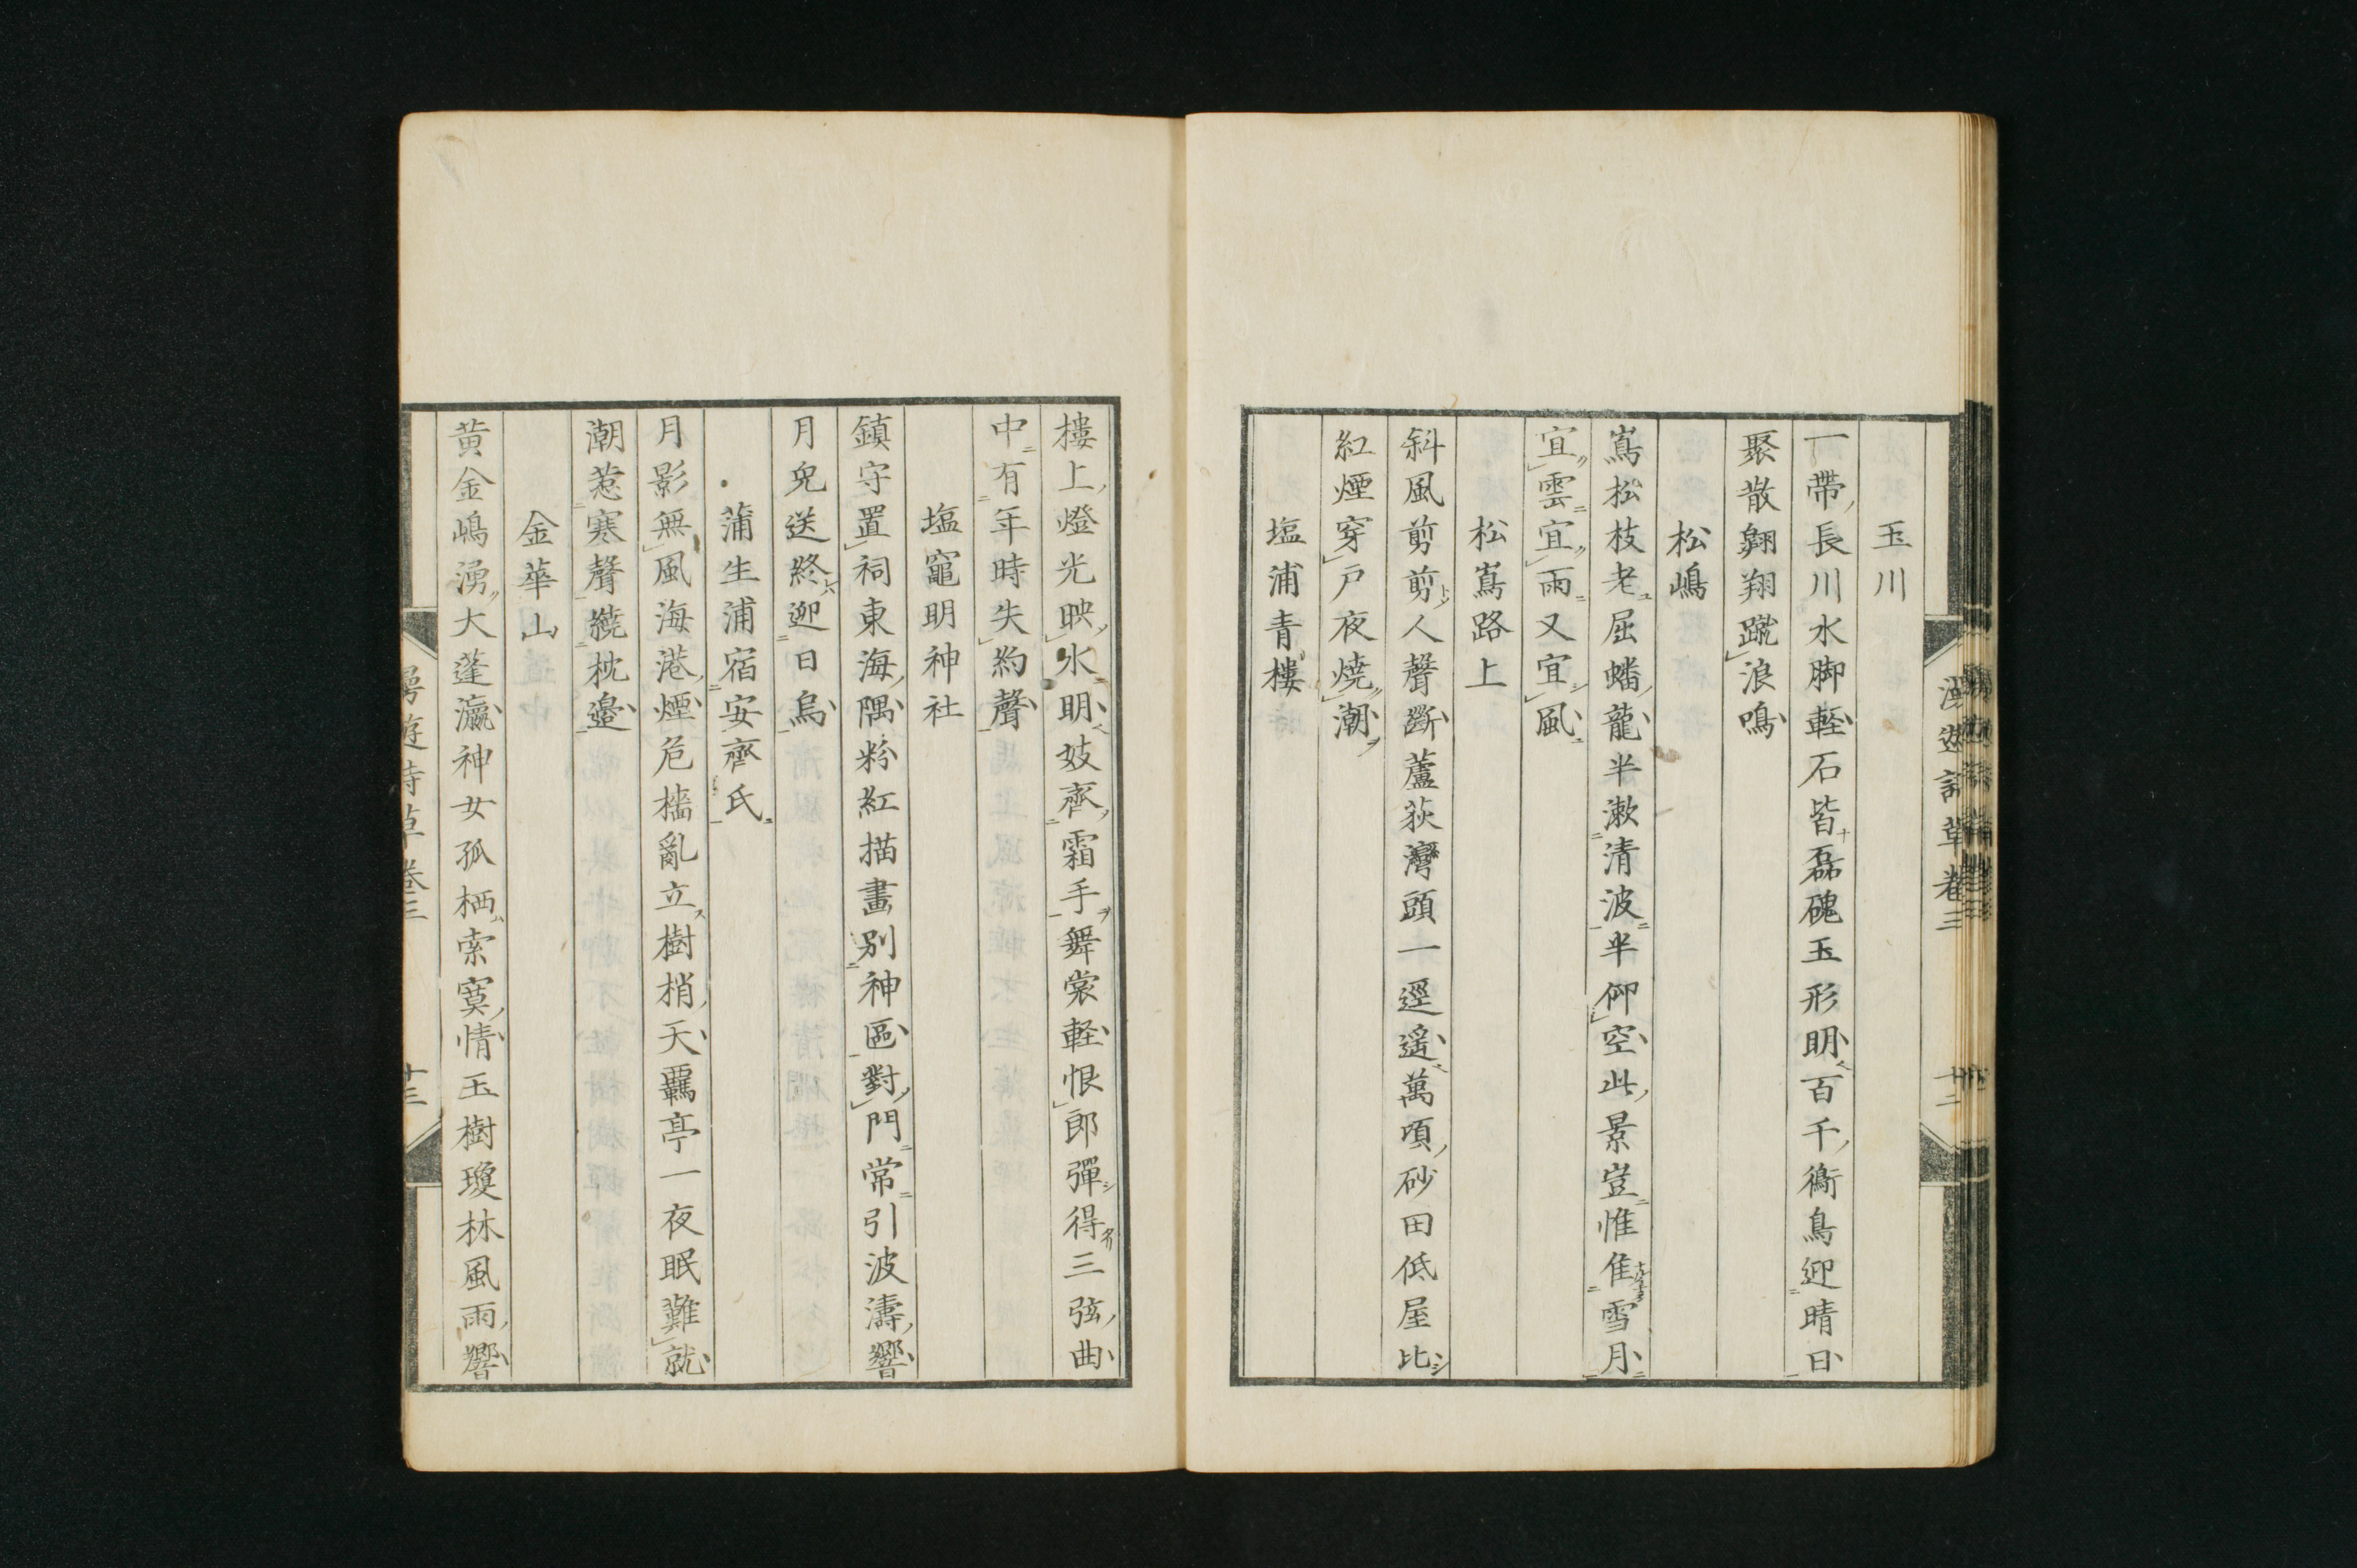 玉川
一帶長川水脚軽石皆磊磈玉形明百千鵆鳥迎晴日
聚散翺翔蹴浪鳴
松嶋
嶌松枝老屈蟠龍半漱清波半仰空此景豈惟隹雪月
宜雲宜雨又宜風
松嶌路上
斜風剪剪人聲斷蘆荻灣頭一逕遥萬頃砂田低屋比
紅煙穿戸夜焼潮
塩浦青樓
漫遊詩草卷三
十二
樓上燈光映水明妓齊霜手舞裳軽恨郎彈得三弦曲
中有年時失約聲
塩竈明神社
鎮守置祠東海隅粉紅描畫別神區對門常引波濤響
月兒送終迎日烏
蒲生浦宿安齊氏
月影無風海港煙危檣亂立樹梢天覊亭一夜眠難就
潮惹寒聲繞枕邉
金華山
黄金嶋湧大蓬瀛神女孤栖索寞情玉樹瓊林風雨響
漫遊詩草卷三
十三